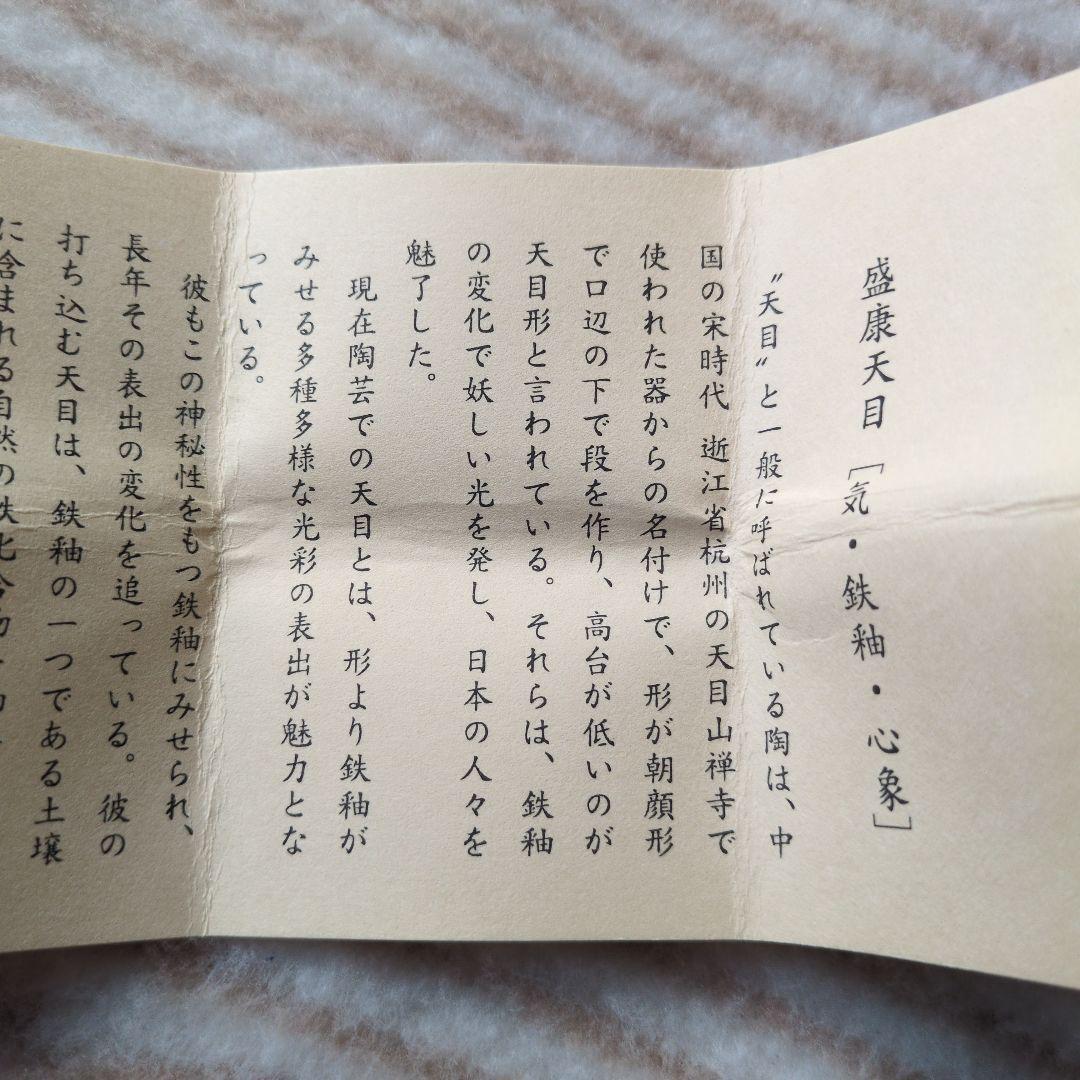 盛康天目［気・鉄釉・心象］
〝天目〟と一般に呼ばれている陶は、中
国の宋時代 逝江省杭州の天目山禅寺で
使われた器からの名付けで、形が朝顔形
で口辺の下で段を作り、高台が低いのが
天目形と言われている。それらは、鉄釉
の変化で妖しい光を発し、日本の人々を
魅了した。
現在陶芸での天目とは、形より鉄釉が
みせる多種多様な光彩の表出が魅力とな
っている。
彼もこの神秘性をもつ鉄釉にみせられ、
長年その表出の変化を追っている。彼の
打ち込む天目は、鉄釉の一つである土壌
に含まれる自然の鉄化合物